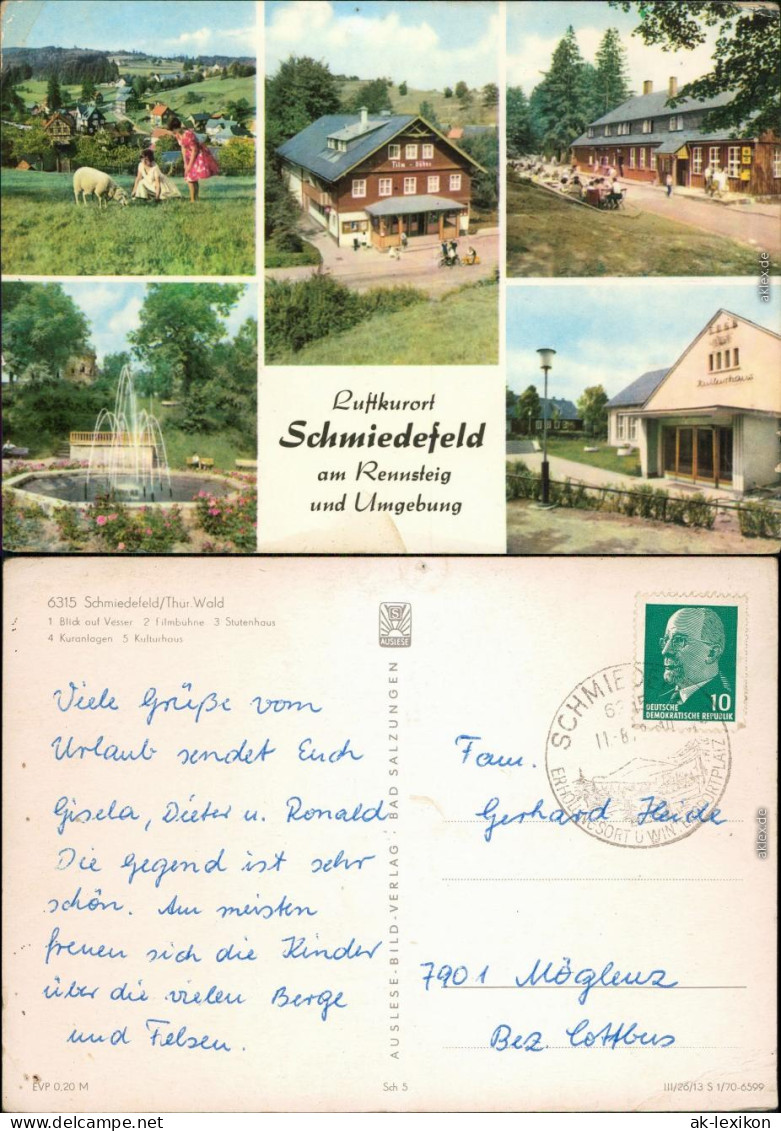 Film-Bühne
Kulturhaus
Luftkurort
Schmiedefeld
am Rennsteig
und Umgebung
aklex.de
6315 Schmiedefeld/Thür. Wald
1 Blick auf Vesser 2 Filmbühne 3 Stutenhaus
4 Kuranlagen 5 Kulturhaus
S
AUSLESE
DEUTSCHE
DEMOKRATISCHE REPUBLIK
10
SCHMIEDE
11.-8.
ERHOLUNGSORT U WINTERSPORTPLATZ
Viele Grüße vom
Urlaub sendet Euch
Gisela, Dieter u. Ronald
Die Gegend ist sehr
schön. Am meisten
freuen sich die Kinder
über die vielen Berge
und Felsen.
AUSLESE-BILD-VERLAG · BAD SALZUNGEN
Fam.
Gerhard Heide
7901 Möglenz
Bez. Cottbus
aklex.de
EVP 0,20 M
Sch 5
III/26/13 S 1/70-6599
ak-lexikon